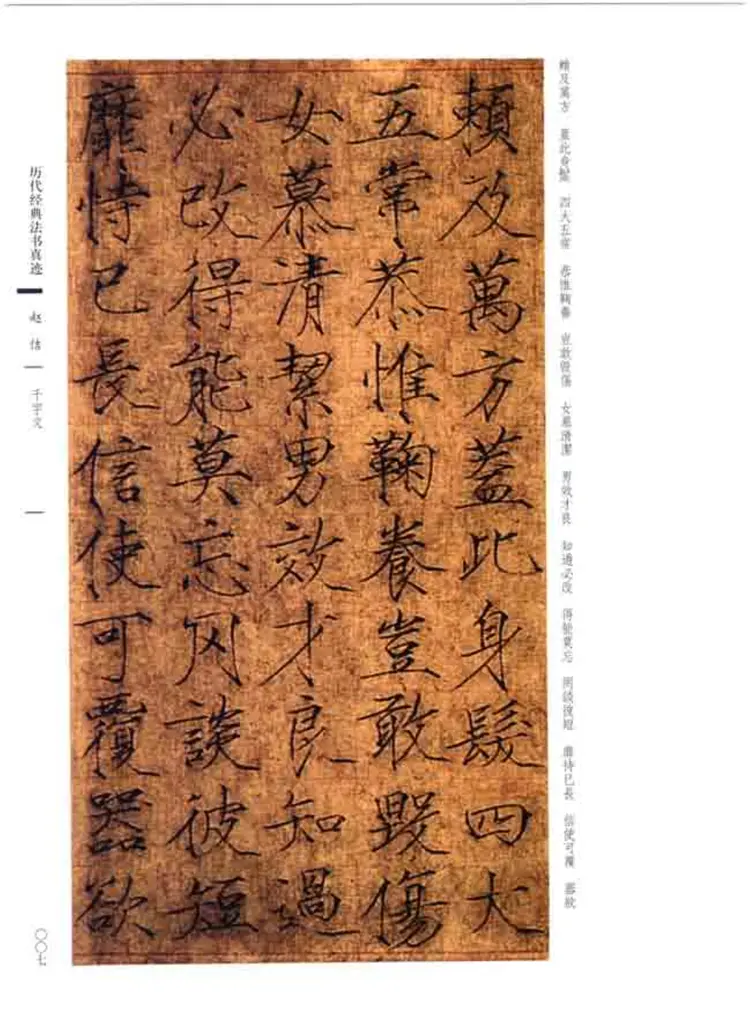 賴及萬方 蓋此身髮 四大五常 恭惟鞠養 豈敢毀傷 女慕清潔 男效才良 知過必改 得能莫忘 罔談彼短 靡恃已長 信使可覆 器欲
賴及萬方蓋此身髮四大
五常恭惟鞠養豈敢毀傷
女慕清絜男效才良知過
必改得能莫忘罔談彼短
靡恃已長信使可覆器欲
历代经典法书真迹
赵佶
千字文
〇〇七